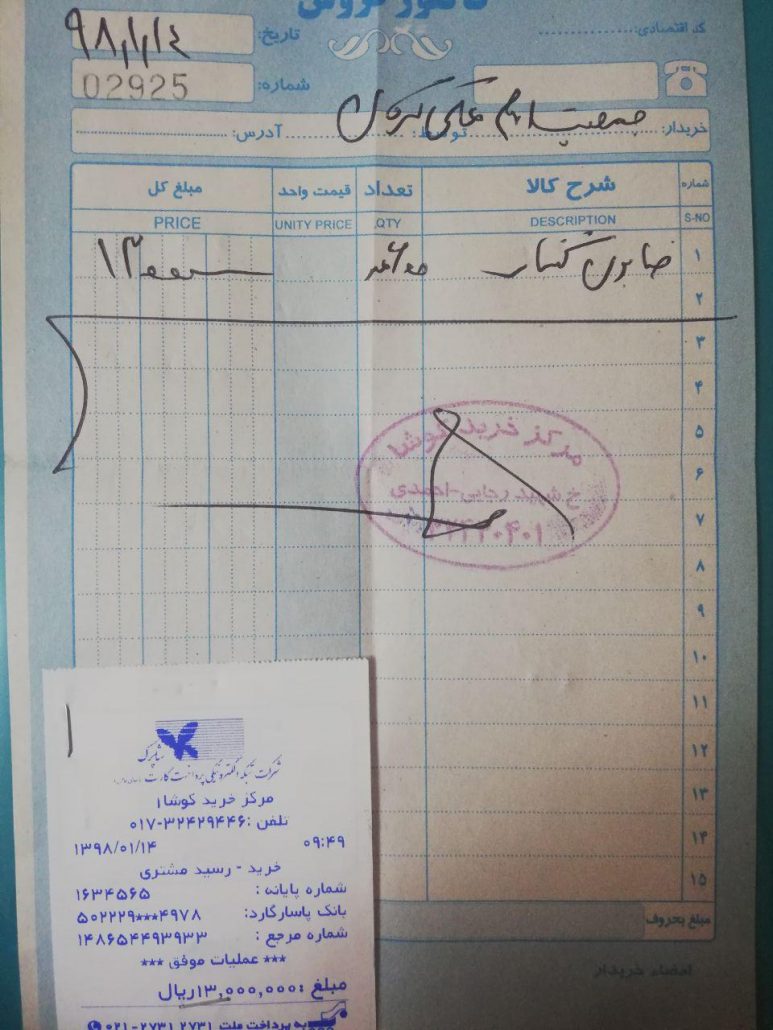 فاکتور فروش
کد اقتصادی:
تاریخ: ۹۸/۱/۱۴
شماره: 02925
خریدار: توسط: آدرس:
شماره شرح کالا تعداد قیمت واحد مبلغ کل
S-NO DESCRIPTION QTY. UNITY PRICE PRICE
۱ صابون گلنار عدد ۱۳۰۰۰۰۰۰
۲
۳
۴
۵
۶
۷
۸
۹
۱۰
۱۱
۱۲
۱۳
۱۴
۱۵
مرکز خرید کوشا
خ شهید رجایی-احمدی
مبلغ بحروف
امضاء خریدار
شاپرک
شرکت شبکه الکترونیکی پرداخت کارت
مرکز خرید کوشا۱
تلفن: ۰۱۷-۳۲۴۲۹۴۴۶
۱۳۹۸/۰۱/۱۴ ۰۹:۴۹
خرید - رسید مشتری
شماره پایانه: ۱۶۳۴۵۶۵
بانک پاسارگارد: ۵۰۲۲۲۹***۴۹۷۸
شماره مرجع: ۱۴۸۶۵۴۴۹۳۹۳۳
*** عملیات موفق ***
مبلغ: ۱۳,۰۰۰,۰۰۰ریال
به پرداخت ملت ۲۷۳۱ ۲۷۳۱-۰۲۱